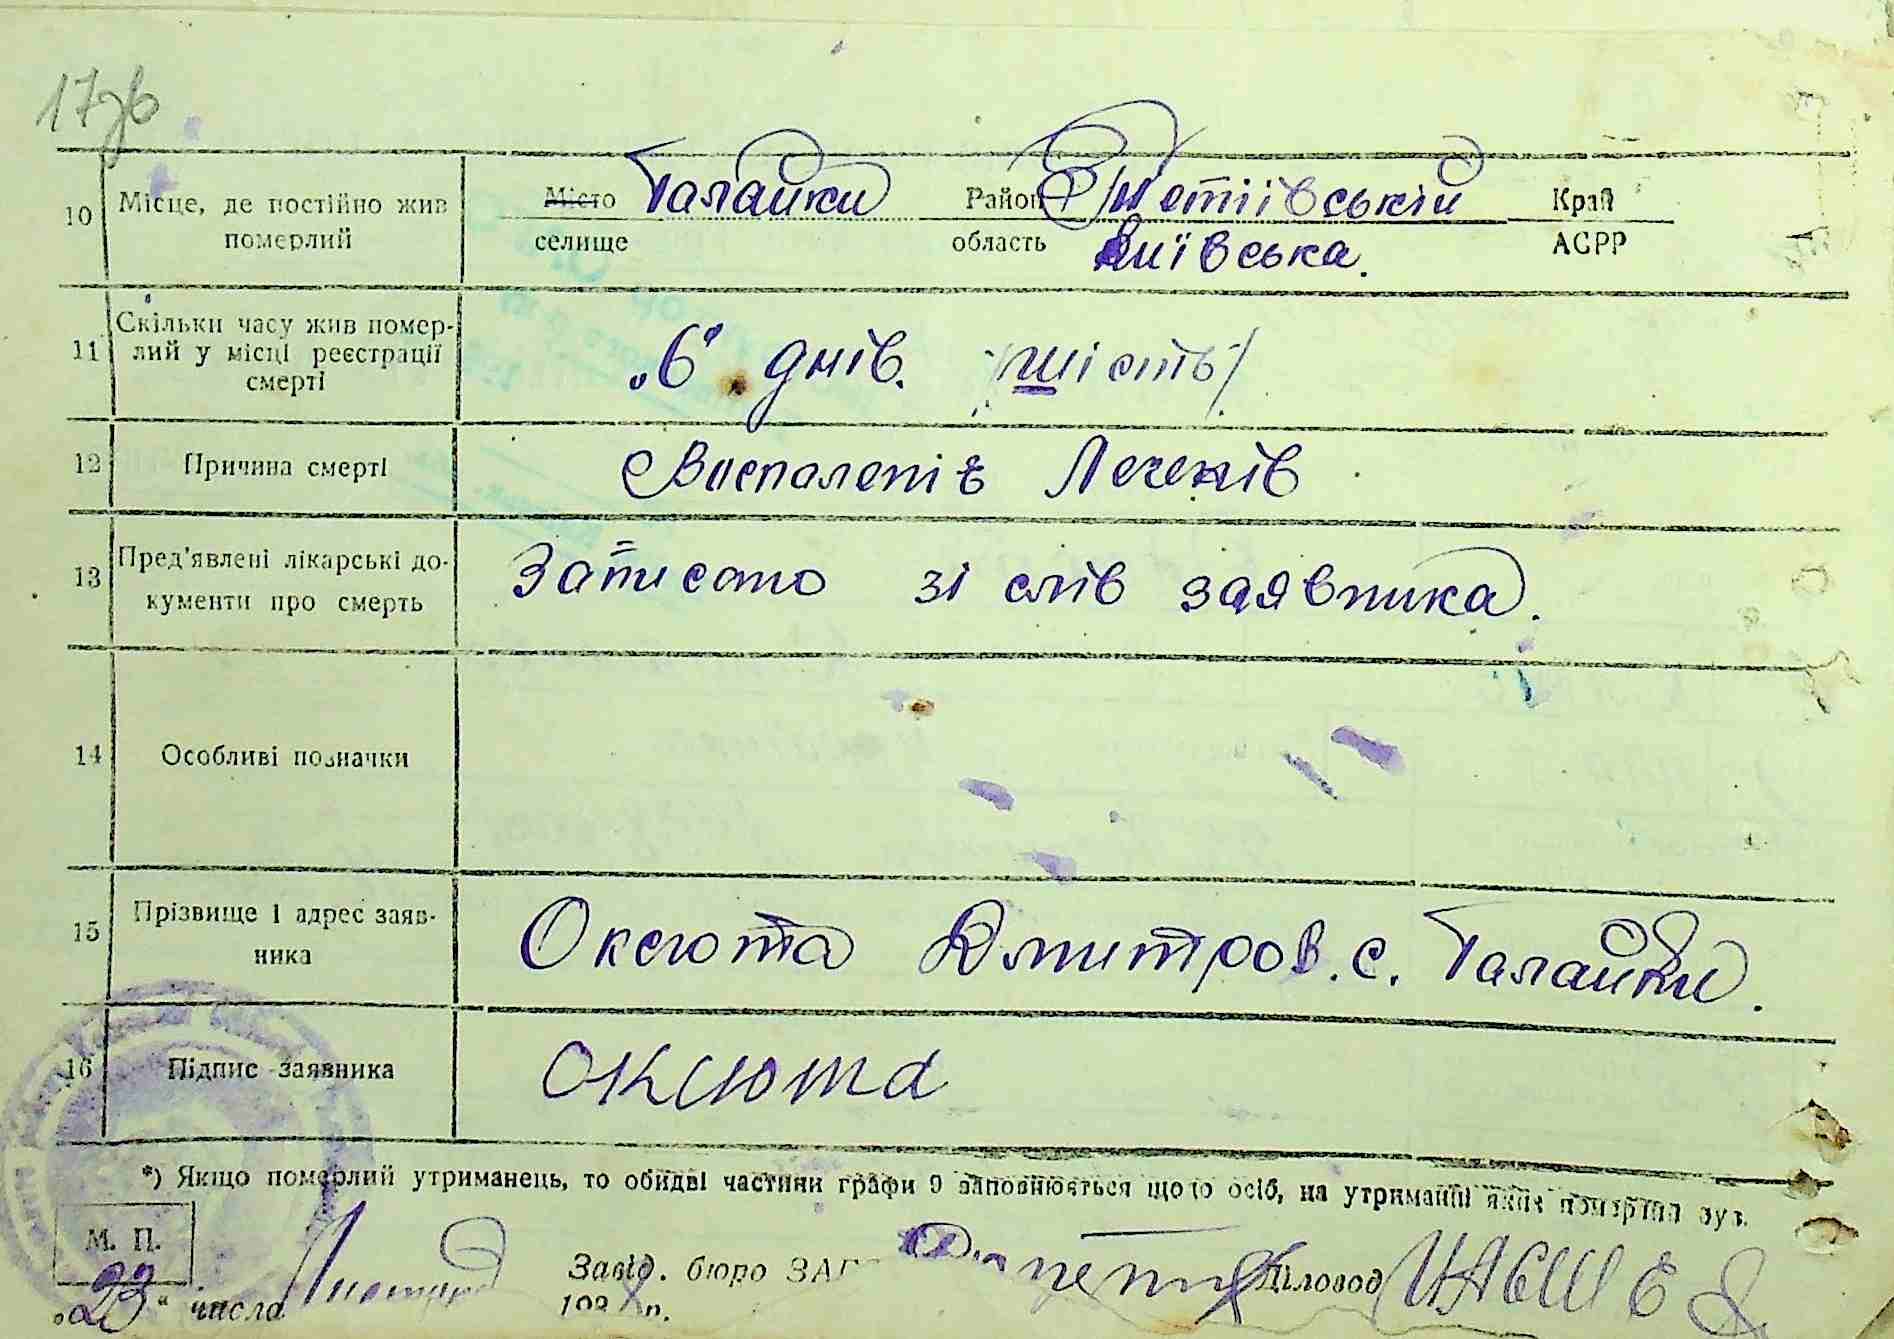 17зв
10 Місце, де постійно жив Місто Галайки Район Тетіївській Край
померлий селище область Київська. АСРР
11 Скільки часу жив помер-
лий у місці реєстрації
смерті
„6" днів. /шість/
12 Причина смерті Воспаленіє Легенів
13 Пред'явлені лікарські до-
кументи про смерть
Записано зі слів заявника.
14 Особливі позначки
15 Прізвище і адрес заяв-
ника
Оксюта Дмитров. с. Галайки.
16 Підпис заявника Оксюта
*) Якщо померлий утриманець, то обидві частини графи 9 заповнюється щодо осіб, на утриманні яких померлий був.
М. П.
„23" числа Листопад Завід. бюро ЗАГС Діловод
193 р.